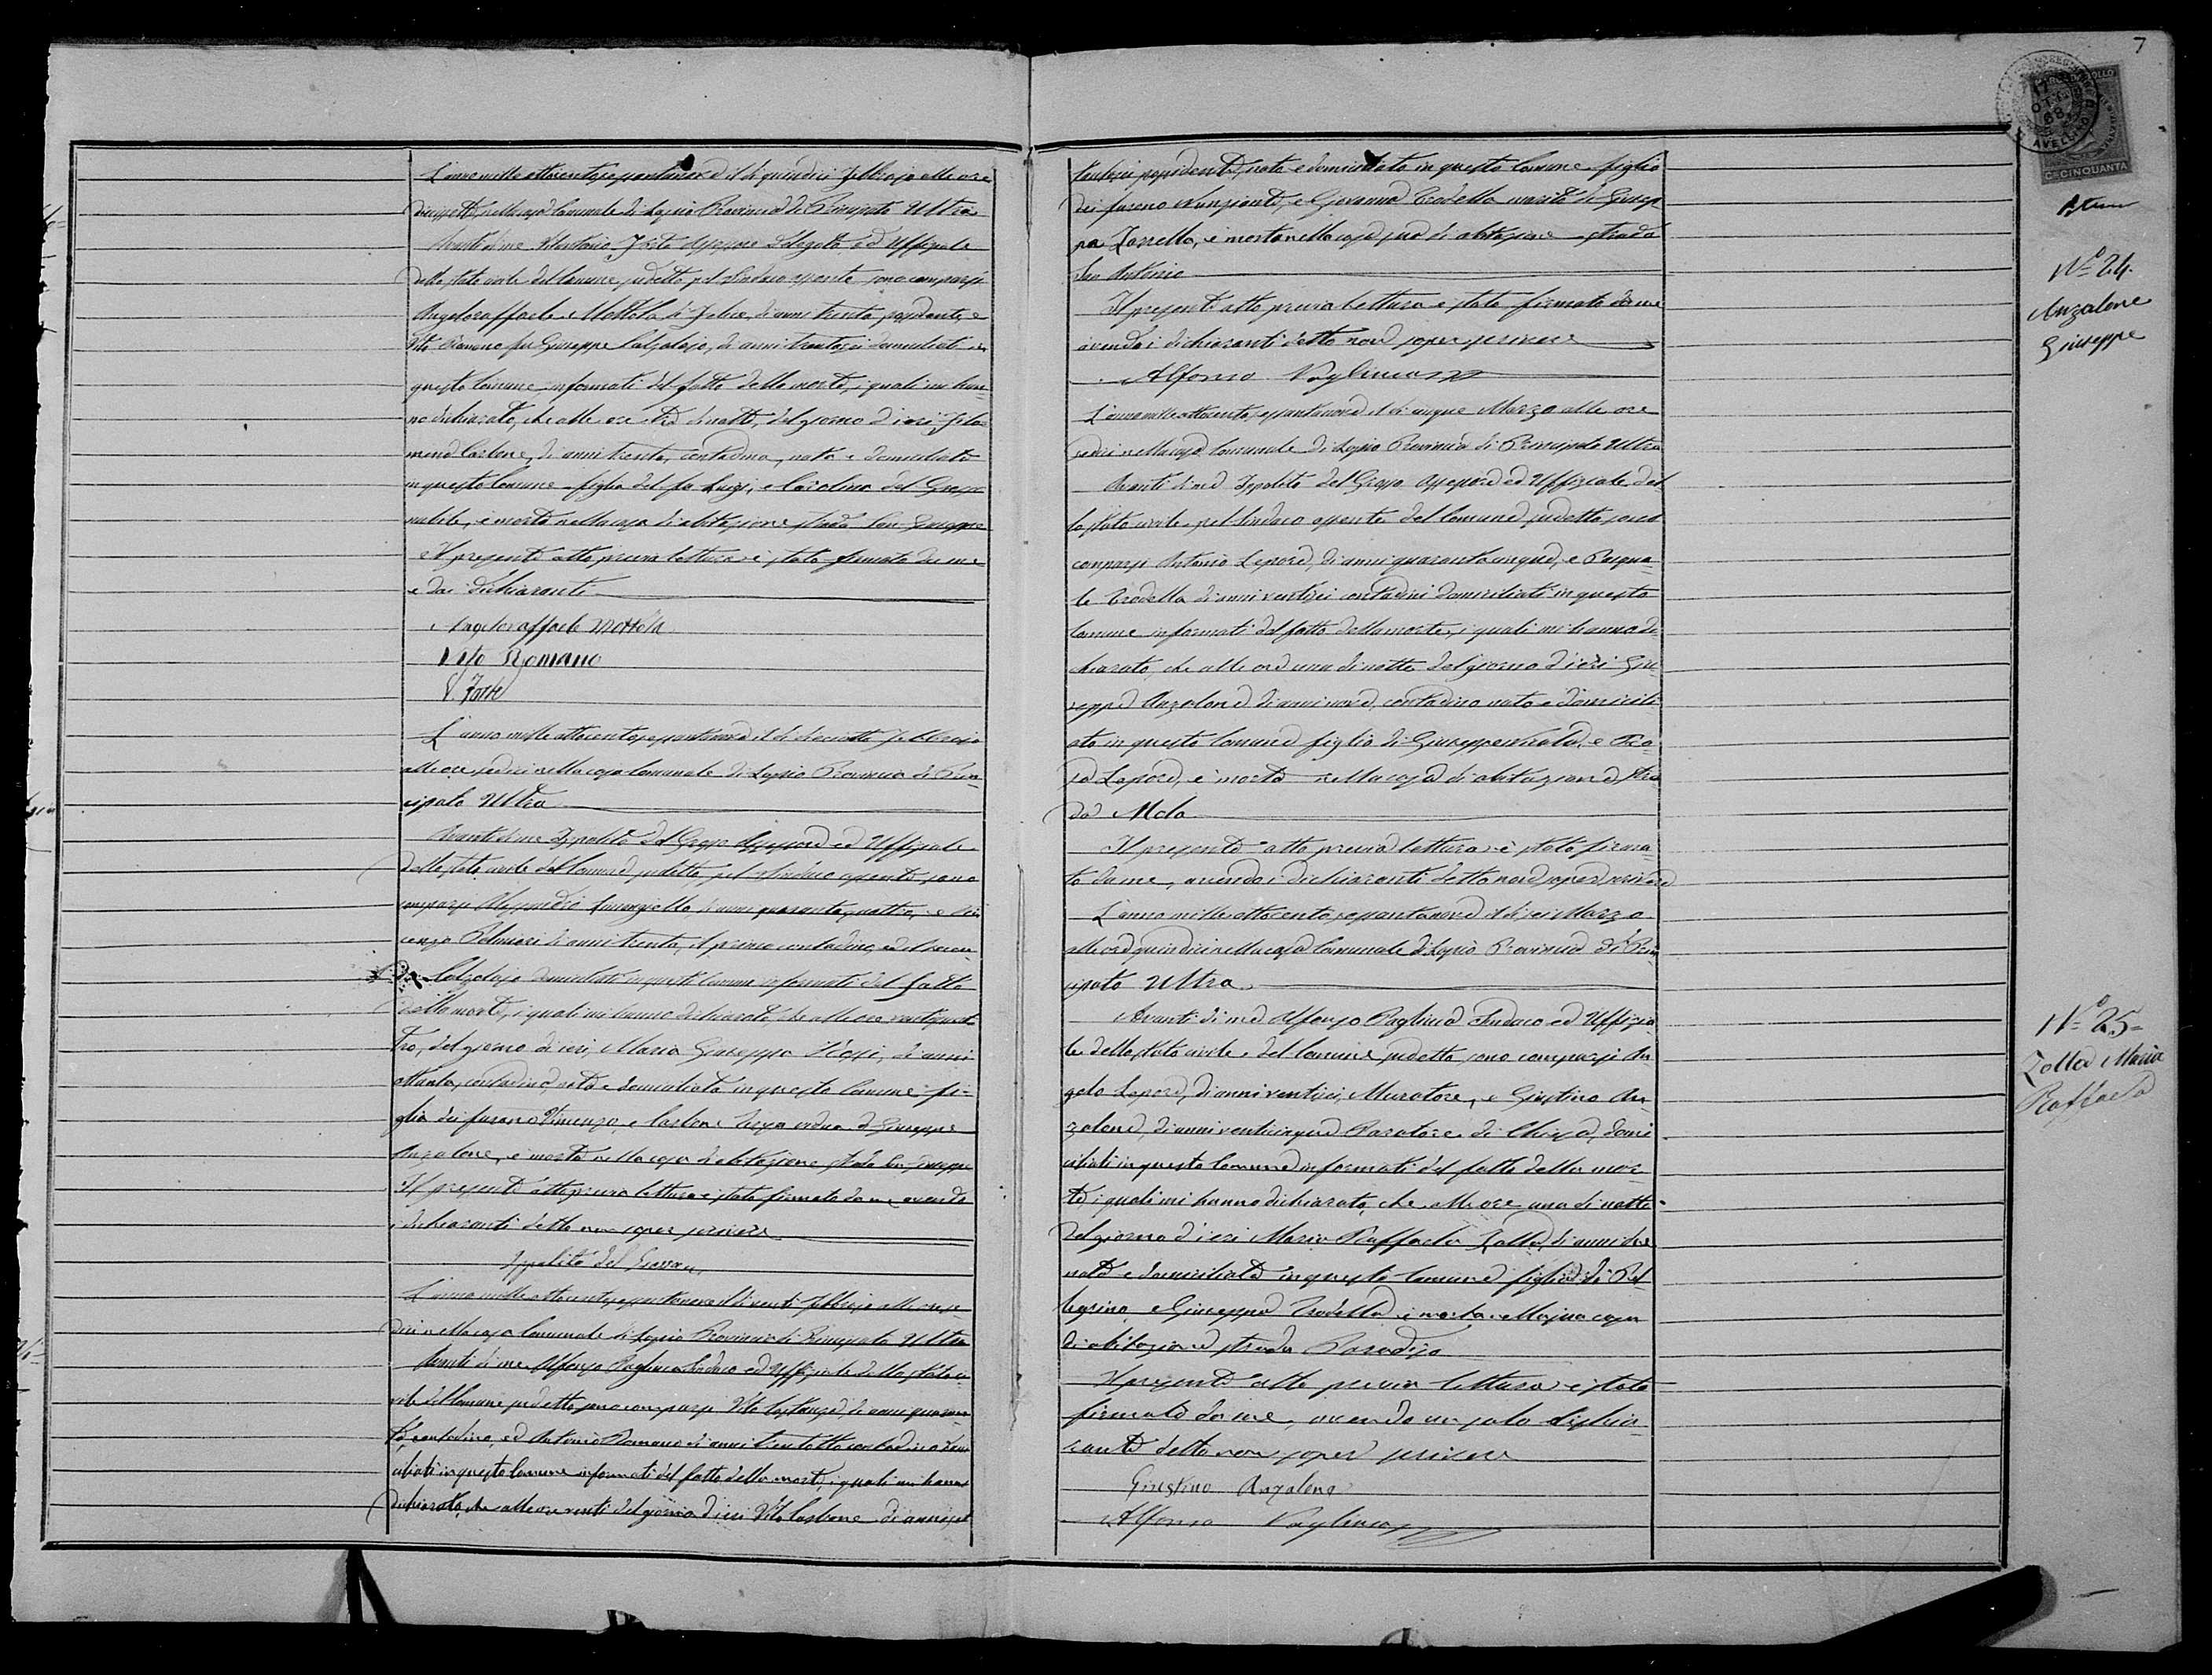 L'anno mille ottocentosessantanove il dì quindici Febbrajo alle ore
diciassette nella casa Comunale di Lapio Provincia di Principato Ultra
Avanti di me Assessore Delegato ed Uffiziale
dello stato civile del Comune sudetto pel Sindaco assente sono comparsi
Angeloraffaele Mottola di Felice, di anni trenta, possidente, e
Vito Romano fu Giuseppe Calzolajo, di anni trentasei domiciliati in
questo Comune, informati del fatto della morte, i quali mi han-
no dichiarato, che alle ore tre di notte, del giorno d'ieri, Filo-
mena Carbone, di anni trenta, contadina, nata e domiciliata
in questo Comune figlia del fu Luigi, e Carolina del Grosso
nubile, è morta nella casa di abitazione strada San Giuseppe
Il presente atto previa lettura è stato firmato da me
e dai dichiaranti
Angeloraffaele Mottola
Vito Romano
V. Forte
L'anno mille ottocentosessantanove il dì dieciotto Febbrajo
alle ore sedici nella casa Comunale di Lapio Provincia di Prin-
cipato Ultra
Avanti di me Ippolito del Grosso Assessore ed Uffiziale
dello stato civile del Comune sudetto, pel Sindaco assente, sono
comparsi di anni quaranta quattro, e Vin-
cenzo di anni trenta, il primo contadino, ed il secon-
do Calzolajo domiciliati in questo Comune informati del fatto
della morte, i quali mi hanno dichiarato che alle ore ventiquat-
tro, del giorno di ieri, Maria Giuseppa di anni
ottanta, contadina, nata e domiciliata in questo Comune fi-
glia dei furono Vincenzo, e Carbone vedova di Giuseppe
Anzalone, è morta nella casa di abitazione strada San Giuseppe
Il presente atto previa lettura è stato firmato da me avendo
i dichiaranti detto non saper scrivere
Ippolito del Grosso
L'anno mille ottocentosessantanove il dì venti Febbrajo alle ore se-
dici nella casa Comunale di Lapio Provincia di Principato Ultra
Avanti di me Alfonso Pagliuca Sindaco ed Uffiziale dello stato ci-
vile del Comune sudetto sono comparsi Vito Costanzo, di anni quaran-
ta, contadino, ed Antonio Romano di anni trentotto contadino domi-
ciliati in questo Comune informati del fatto della morte, i quali mi hanno
dichiarato, che alle ore venti del giorno d'ieri Vito Carbone di anni set-
7
MARCA DA BOLLO
17 OTT 68
AVELLINO
C. CINQUANTA
possidente, nato e domiciliato in questo Comune figlio
dei furono Nunziante, e Giovanna Trodella marito di Giusep-
pa Zarrella, è morto nella casa sua di abitazione strada
San Antonio
Il presente atto previa lettura è stato firmato da me
avendo i dichiaranti detto non saper scrivere
Alfonso Pagliuca
Nº 24.
Anzalone
Giuseppe
L'anno mille ottocentosessantanove il dì cinque Marzo alle ore
sedici nella casa Comunale di Lapio Provincia di Principato Ultra
Avanti di me Ippolito del Grosso Assessore ed Uffiziale del-
lo stato civile pel Sindaco assente del Comune sudetto sono
comparsi Antonio Lepore, di anni quarantacinque, e Pasqua-
le Trodella di anni ventisei contadini domiciliati in questo
Comune informati del fatto della morte, i quali mi hanno di-
chiarato, che alle ore una di notte del giorno d'ieri Giu-
seppe Anzalone di anni nove, contadino nato e domicili-
ato in questo Comune figlio di Giuseppe Nicola, e Ro-
sa Lepore, è morto nella casa di abitazione stra-
da Mola
Il presente atto previa lettura è stato firma-
to da me, avendo i dichiaranti detto non saper scrivere
Nº 25
Zolla Maria
Raffaela
L'anno mille ottocentosessantanove il dì sei Marzo
alle ore quindici nella casa Comunale di Lapio Provincia di Prin-
cipato Ultra
Avanti di me Alfonso Pagliuca Sindaco ed Uffizia-
le dello stato civile del Comune sudetto sono comparsi An-
gelo Lepore, di anni ventisei, Muratore, e Giustino An-
zalone, di anni venticinque Paratore di Chiesa, domi-
ciliati in questo Comune informati del fatto della mor-
te, i quali mi hanno dichiarato, che alle ore una di notte
del giorno d'ieri Maria Raffaela Zolla, di anni due
nata e domiciliata in questo Comune figlia di Pel-
legrino, e Giuseppa Trodella è morta nella sua casa
di abitazione strada Paradiso
Il presente atto previa lettura è stato
firmato da me, avendo un solo dichia-
rante detto non saper scrivere
Giustino Anzalone
Alfonso Pagliuca